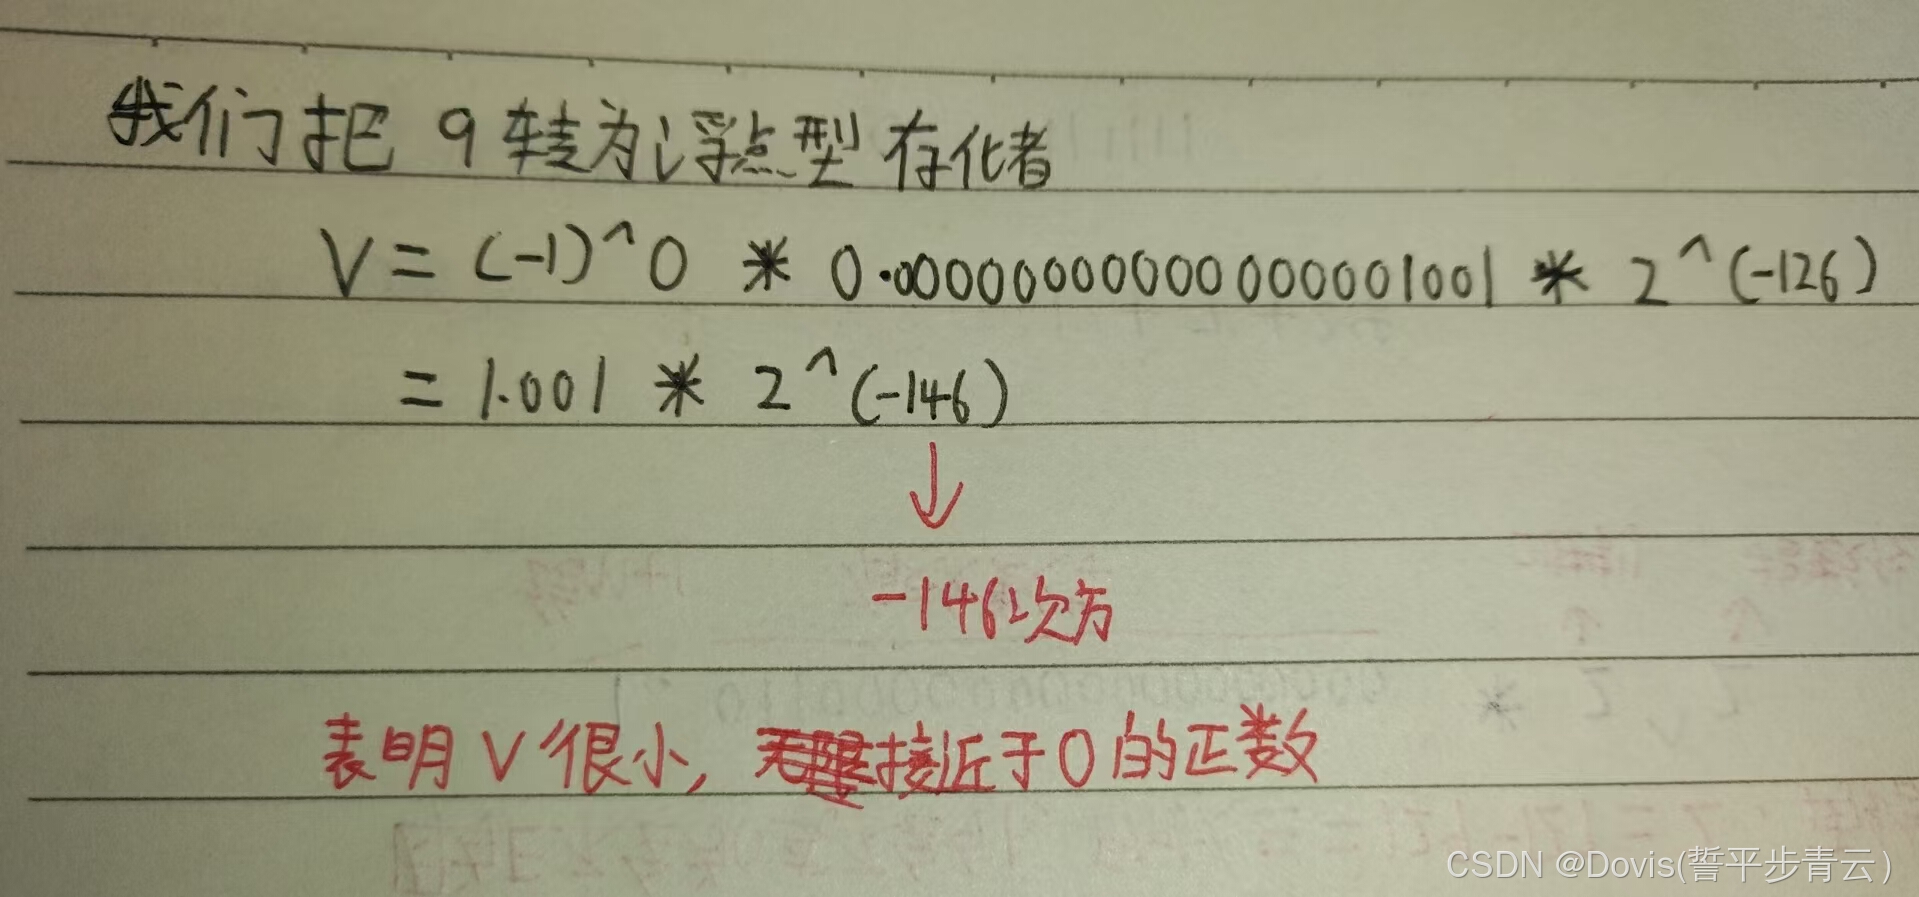 我们把9转为浮点型存储
V = (-1)^0 * 0.000000000000000001001 * 2^(-126)
= 1.001 * 2^(-146)
↓
-146次方
表明V很小, 接近于0的正数
CSDN @Dovis(誓平步青云)